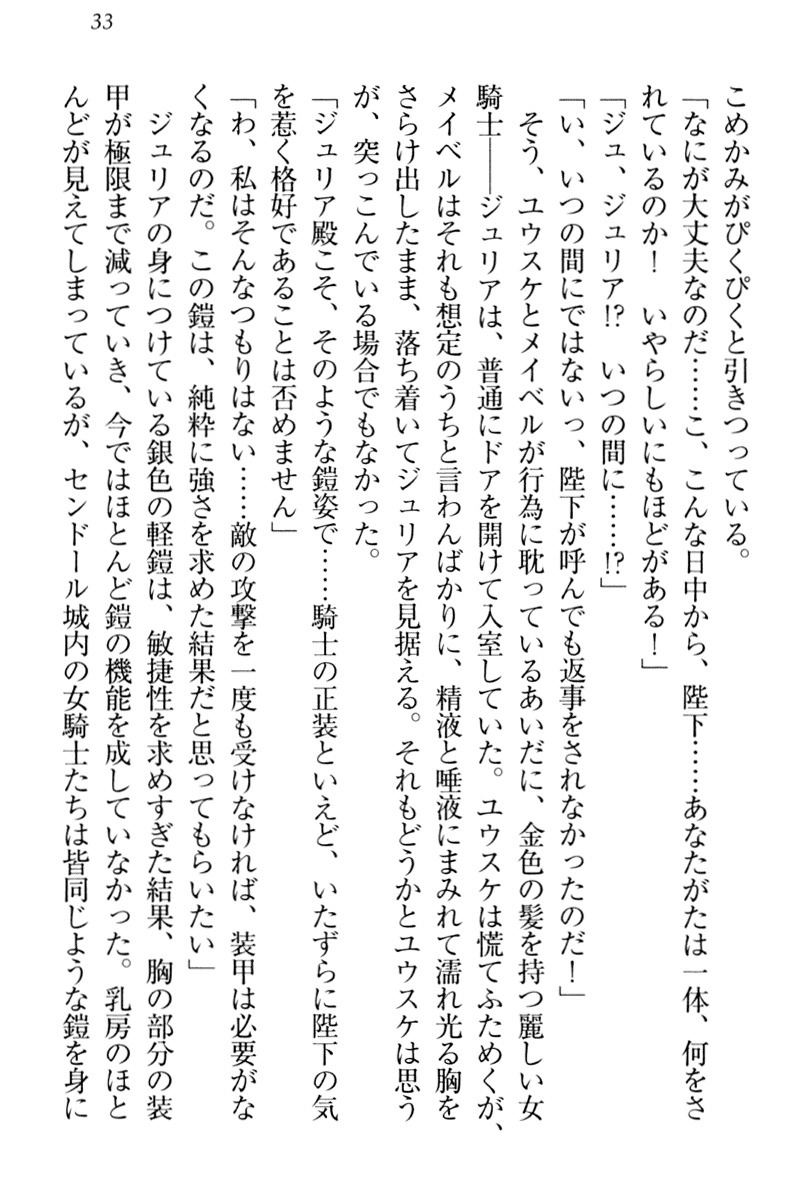 33
こめかみがぴくぴくと引きつっている。
「なにが大丈夫なのだ……こ、こんな日中から、陛下……あなたがたは一体、何をさ
れているのか！　いやらしいにもほどがある！」
「ジュ、ジュリア!?　いつの間に……!?」
「い、いつの間にではないっ、陛下が呼んでも返事をされなかったのだ！」
そう、ユウスケとメイベルが行為に耽っているあいだに、金色の髪を持つ麗しい女
騎士――ジュリアは、普通にドアを開けて入室していた。ユウスケは慌てふためくが、
メイベルはそれも想定のうちと言わんばかりに、精液と唾液にまみれて濡れ光る胸を
さらけ出したまま、落ち着いてジュリアを見据える。それもどうかとユウスケは思う
が、突っこんでいる場合でもなかった。
「ジュリア殿こそ、そのような鎧姿で……騎士の正装といえど、いたずらに陛下の気
を惹く格好であることは否めません」
「わ、私はそんなつもりはない……敵の攻撃を一度も受けなければ、装甲は必要がな
くなるのだ。この鎧は、純粋に強さを求めた結果だと思ってもらいたい」
ジュリアの身につけている銀色の軽鎧は、敏捷性を求めすぎた結果、胸の部分の装
甲が極限まで減っていき、今ではほとんど鎧の機能を成していなかった。乳房のほと
んどが見えてしまっているが、センドール城内の女騎士たちは皆同じような鎧を身に